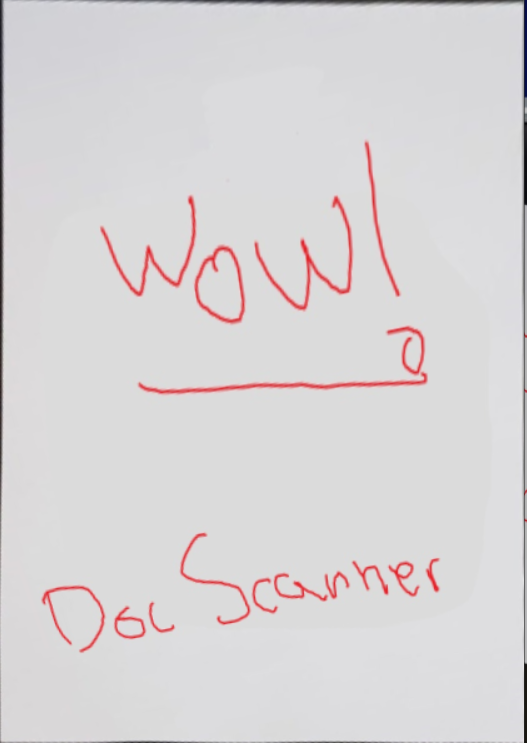 WOW!
Doc Scanner